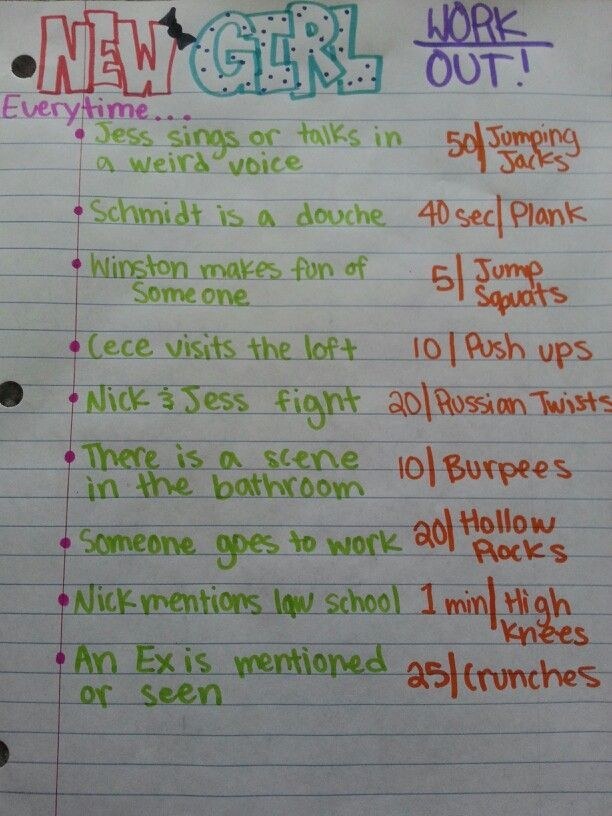 NEW GIRL WORK
OUT!
Everytime...
• Jess sings or talks in 50/Jumping
a weird voice Jacks
• Schmidt is a douche 40 sec/Plank
• Winston makes fun of 5/Jump
Someone Squats
• Cece visits the loft 10/Push ups
• Nick & Jess fight 20/Russian Twists
• There is a scene 10/Burpees
in the bathroom
• Someone goes to work 20/Hollow
Rocks
• Nick mentions law school 1 min/High
Knees
• An Ex is mentioned 25/Crunches
or seen